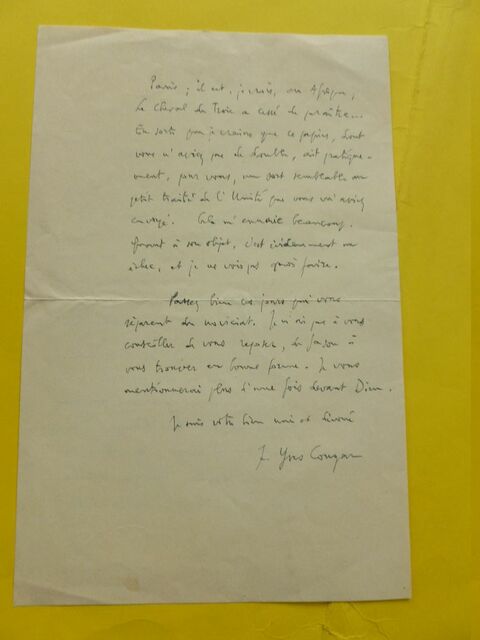 Paris ; il est, je crois, en Afrique ;
le Cheval de Troie a cessé de paraître...
En sorte que je crains que ce papier, dont
vous n'aviez pas de double, ait pratique-
ment, pour vous, un sort semblable au
petit traité de l'Unité que vous m'aviez
envoyé. Cela m'ennuie beaucoup.
Quant à son objet, c'est évidemment un
échec, et je ne vois pas quoi faire.
Passez bien ces jours qui vous
séparent du noviciat. Je n'ai pas à vous
conseiller de vous reposer, de façon à
vous trouver en bonne forme. Je vous
mentionnerai plus d'une fois devant Dieu.
Je suis votre bien uni et dévoué
Yves Congar